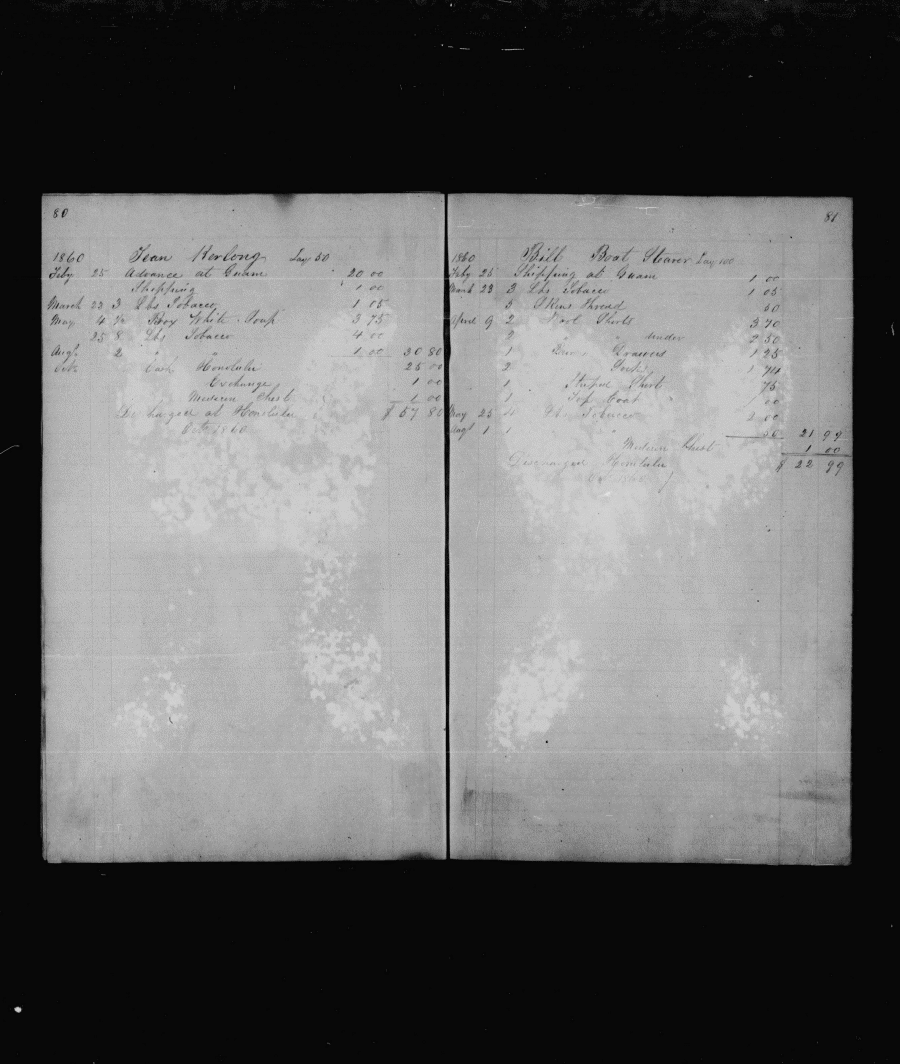 80
1860 Jean Kerlong Lay 50
Feby 25 Advance at Guam 20 00
Shipping 1 00
March 22 3 Lbs Tobacco 1 05
May 4 ½ Box White Soap 3 75
25 8 Lbs Tobacco 4 00
Augt 2 " " 1 00 30 80
Octr Cash Honolulu 25 00
Exchange 1 00
Medicin Chest 1 00
Discharged at Honolulu $ 57 80
Octr 1860
81
1860 Bill Boat Steerer Lay 100
Feby 25 Shipping at Guam 1 00
March 23 3 Lbs Tobacco 1 05
3 Skins Thread 30
April 9 2 Shirts 3 70
2 " " under 2 50
1 Drawers 1 25
2 1 74
1 Striped Shirt 75
1 Top Coat 00
May 25 4 Lbs Tobacco 2 00
Augt 1 1 " " 50 21 99
Medicin Chest 1 00
Discharged Honolulu $ 22 99